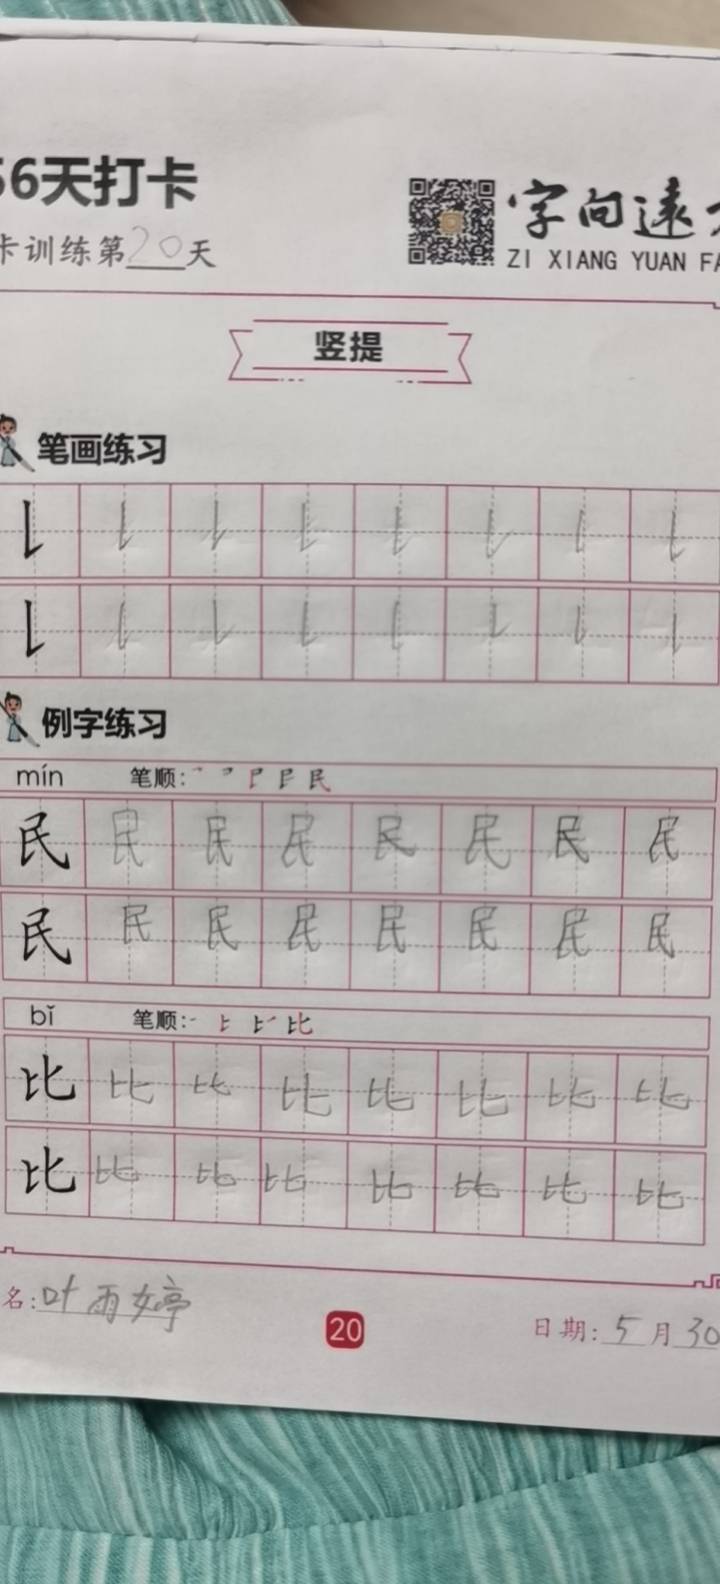 56天打卡
字向遠
卡训练第20天
ZI XIANG YUAN FA
竖提
笔画练习
例字练习
mín 笔顺:
民 民 民 民 民 民 民 民
民 民 民 民 民 民 民 民
bǐ 笔顺:
比 比 比 比 比 比 比 比
比 比 比 比 比 比 比 比
名:叶雨婷
20
日期:5月30